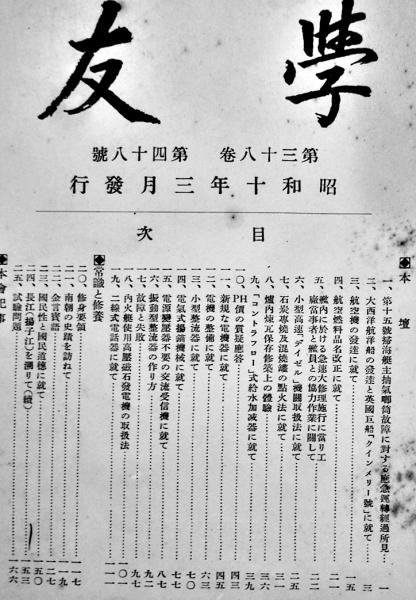 學友
第三十八卷 第四十八號
昭和十年三月發行
目次
◆本壇
一、第十五號掃海艇主抽氣喞筒故障に對する應急運轉經過所見…一
二、大西洋航洋船の發達と英國巨船「クインメリー號」に就て…三
三、航空機の發達に就て…一五
四、航空燃料品名改正に就て…二二
五、艦內に於ける急速大修理施行に當り工
廠當事者と艦員との協力作業に關して…二一
六、小型高速「デイゼル」機關取扱法に就て…二五
七、石炭專燒及混燒罐の點火法に就て…三一
八、爐內煉瓦保存修築上の體驗…三六
九、「コントラフロー」式給水加減器に就て…三九
一〇、PH價の質疑應答…四三
一一、新規な電機器に就て…四八
一二、電機の整備に就て…五四
一三、小型整流器に就て…六三
一四、電氣式揚錨機械に就て
一五、電源變壓器不要の交流受信機に就て…七七
一六、振動型整流器の作り方…八二
一七、故障と失敗…九二
一八、內火艇使用高壓磁石發電機の取扱法
一九、二線式電話器に就て…一一一
◆常識と修養
二〇、修身要領…一一七
二一、南朝の史蹟を訪ねて…一一九
二二、金言實語
二三、國民性と國民道德に就て…一五〇
二四、長江(揚子江)を溯りて(續)…一五三
二五、試驗問題…一六六
◆本會記事